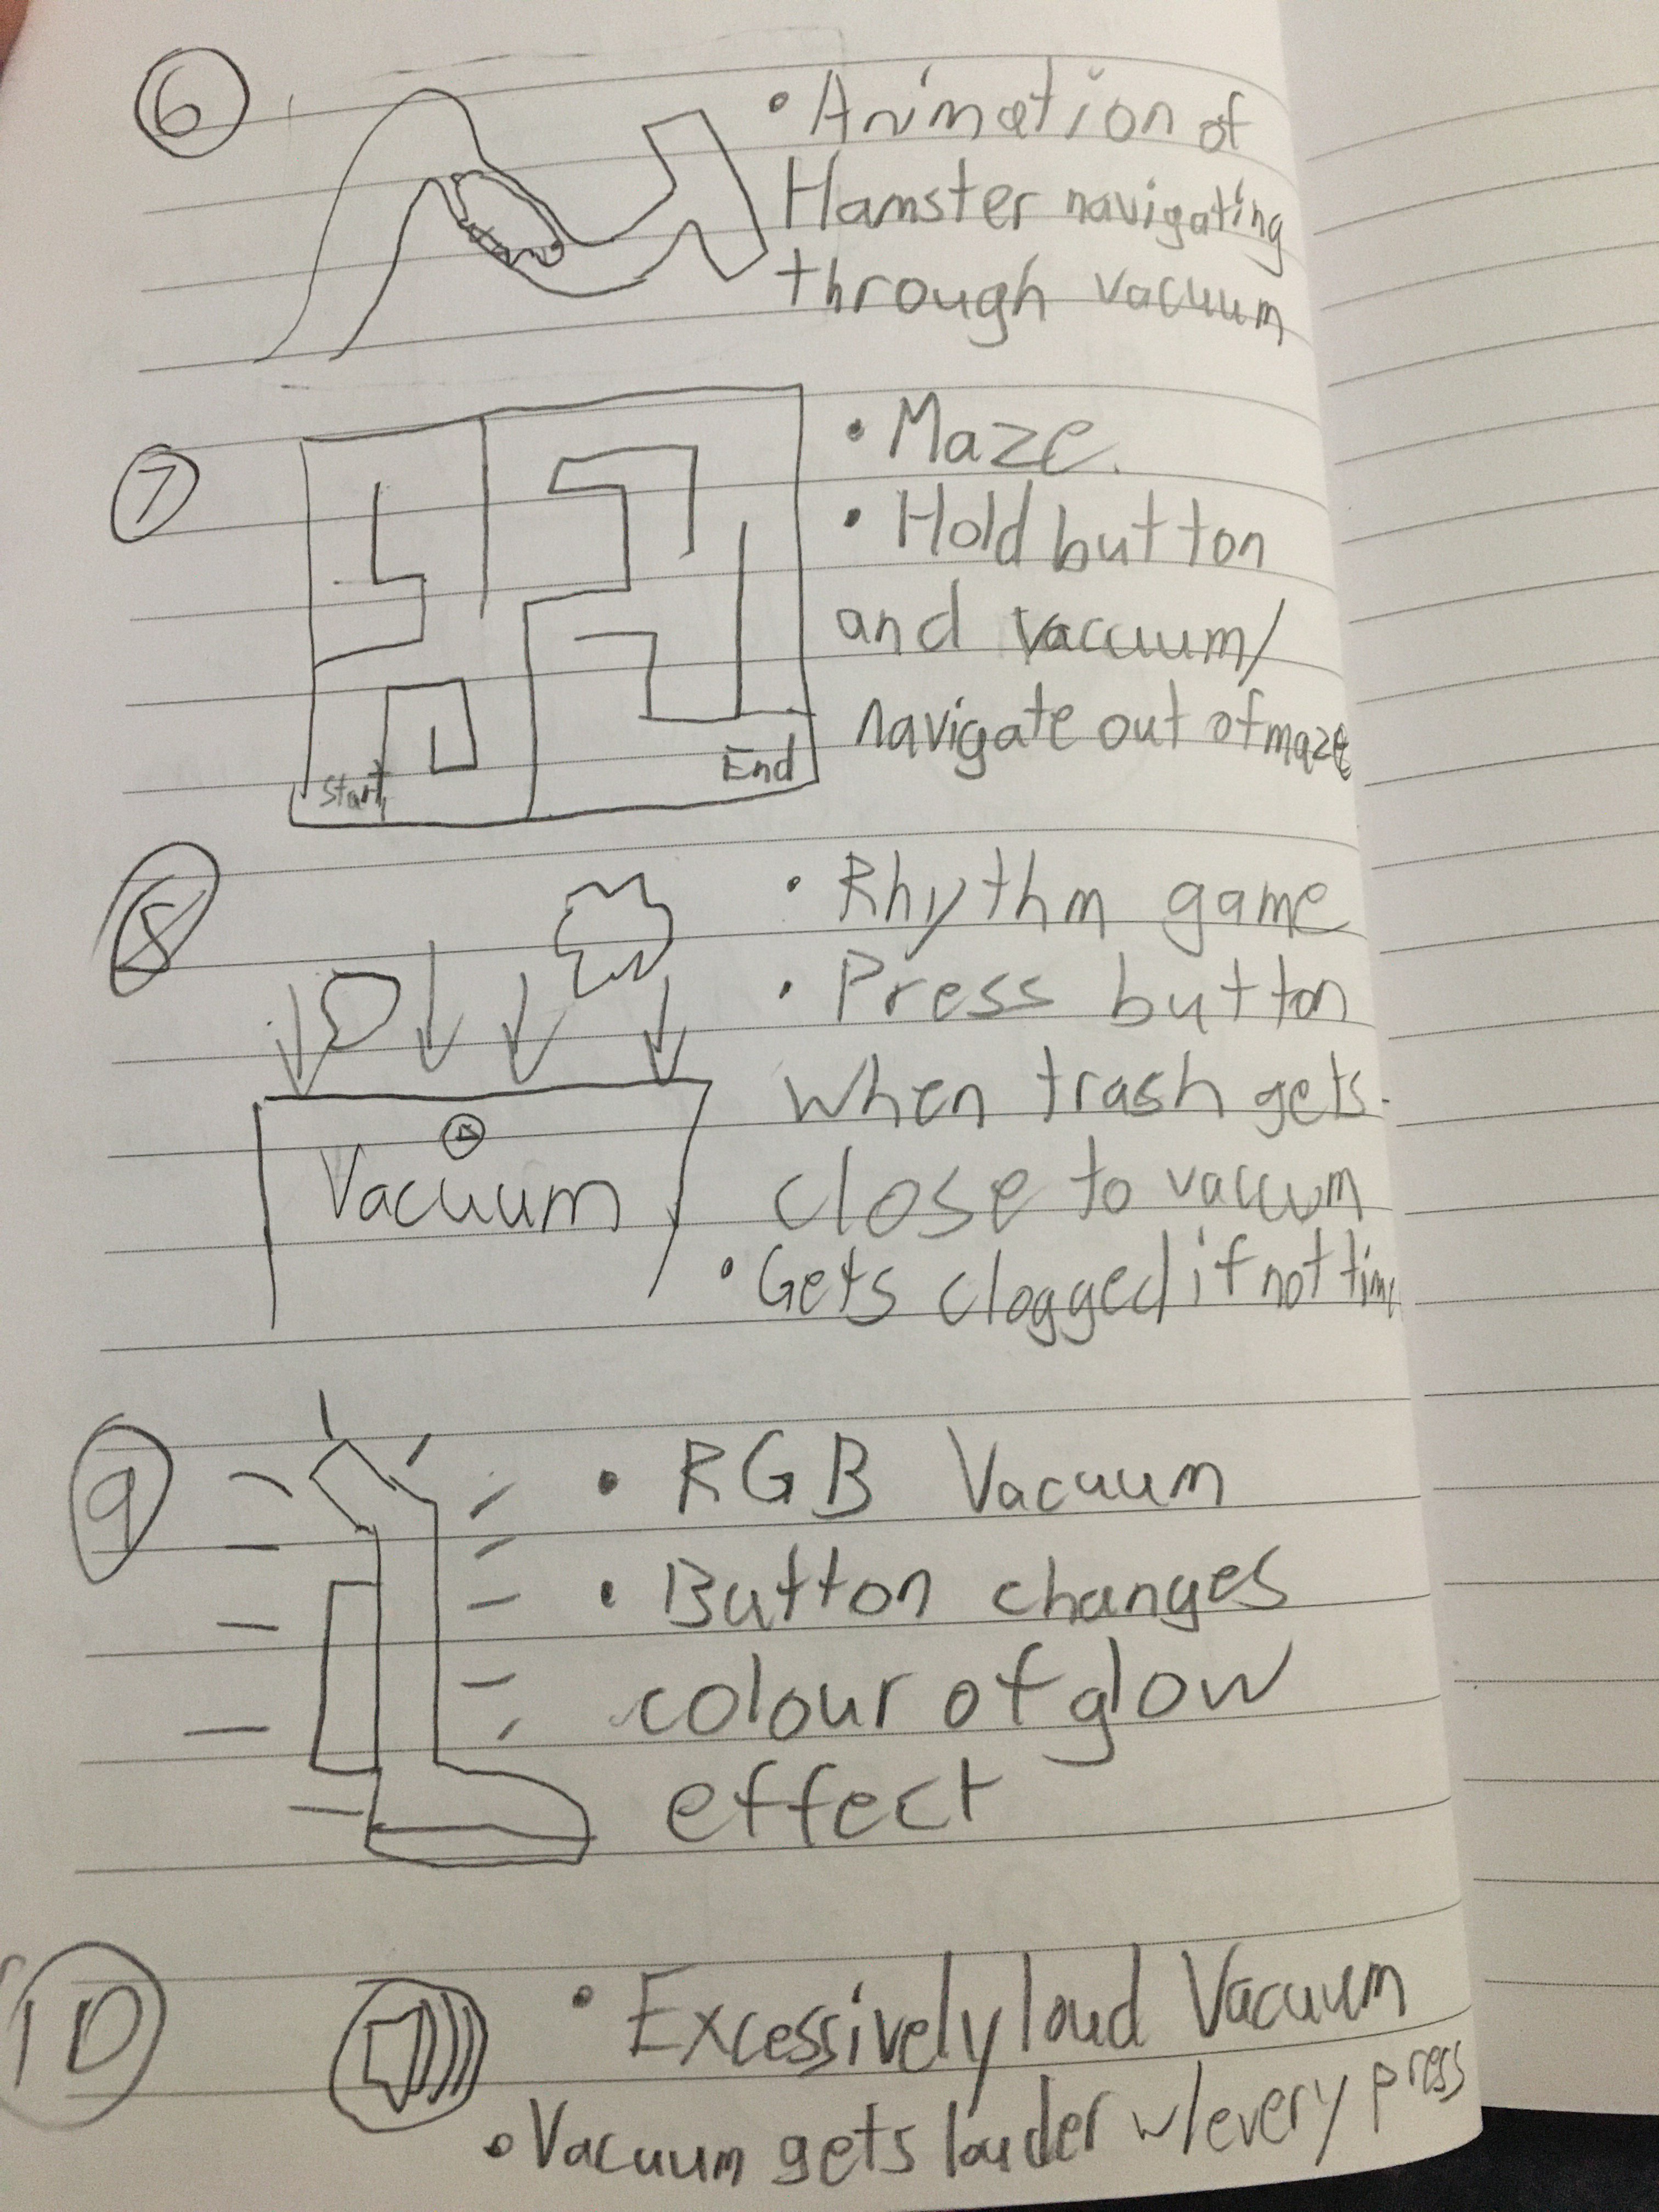 6
• Animation of
Hamster navigating
through vacuum
7
• Maze.
• Hold button
and vacuum/
navigate out of maze
Start
End
8
• Rhythm game
• Press button
when trash gets
close to vacuum
• Gets clogged if not time
Vacuum
9
• RGB Vacuum
• Button changes
colour of glow
effect
10
• Excessively loud Vacuum
• Vacuum gets louder w/every press